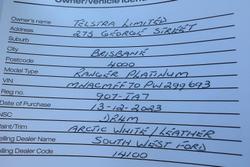 Owner/Vehicle Iden
Owner's name TELSTRA LIMITED
Address 275 GEORGE STREET
Suburb
City BRISBANE
Postcode 4000
Model Type RANGER PLATINUM
VIN MNACMFF70PW299693
Reg No. 907-IA7
Date of Purchase 13-12-2023
NSC JR4M
Paint/Trim ARCTIC WHITE/LEATHER
Selling Dealer Name SOUTH WEST FORD
Selling Dealer Code 14100